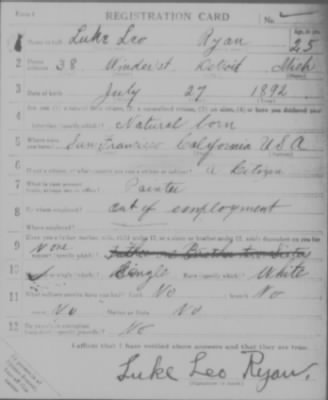 Form 1 REGISTRATION CARD No.
1 Name in full Luke Leo Ryan 25
2 Home address 38 Winder st Detroit Mich
3 Date of birth July 27 1892
4 Are you (1) a natural born citizen, (2) a naturalized citizen, (3) an alien, (4) or have you declared your
intention (specify which)? Natural born
5 Where were you born? San Francisco California U.S.A
6 If not a citizen, of what country are you a citizen or subject? a Citizen
7 What is your present trade, occupation, or office? Painter
8 By whom employed? out of employment
Where employed?
9 Have you a father, mother, wife, child under 12, or a sister or brother under 12, solely dependent on you for
support (specify which)? None
10 Married or single (which)? Single Race (specify which)? White
11 What military service have you had? Rank No branch No
years No Nation or State No
12 Do you claim exemption from draft (specify grounds)? No
I affirm that I have verified above answers and that they are true.
Luke Leo Ryan.
(Signature or mark)